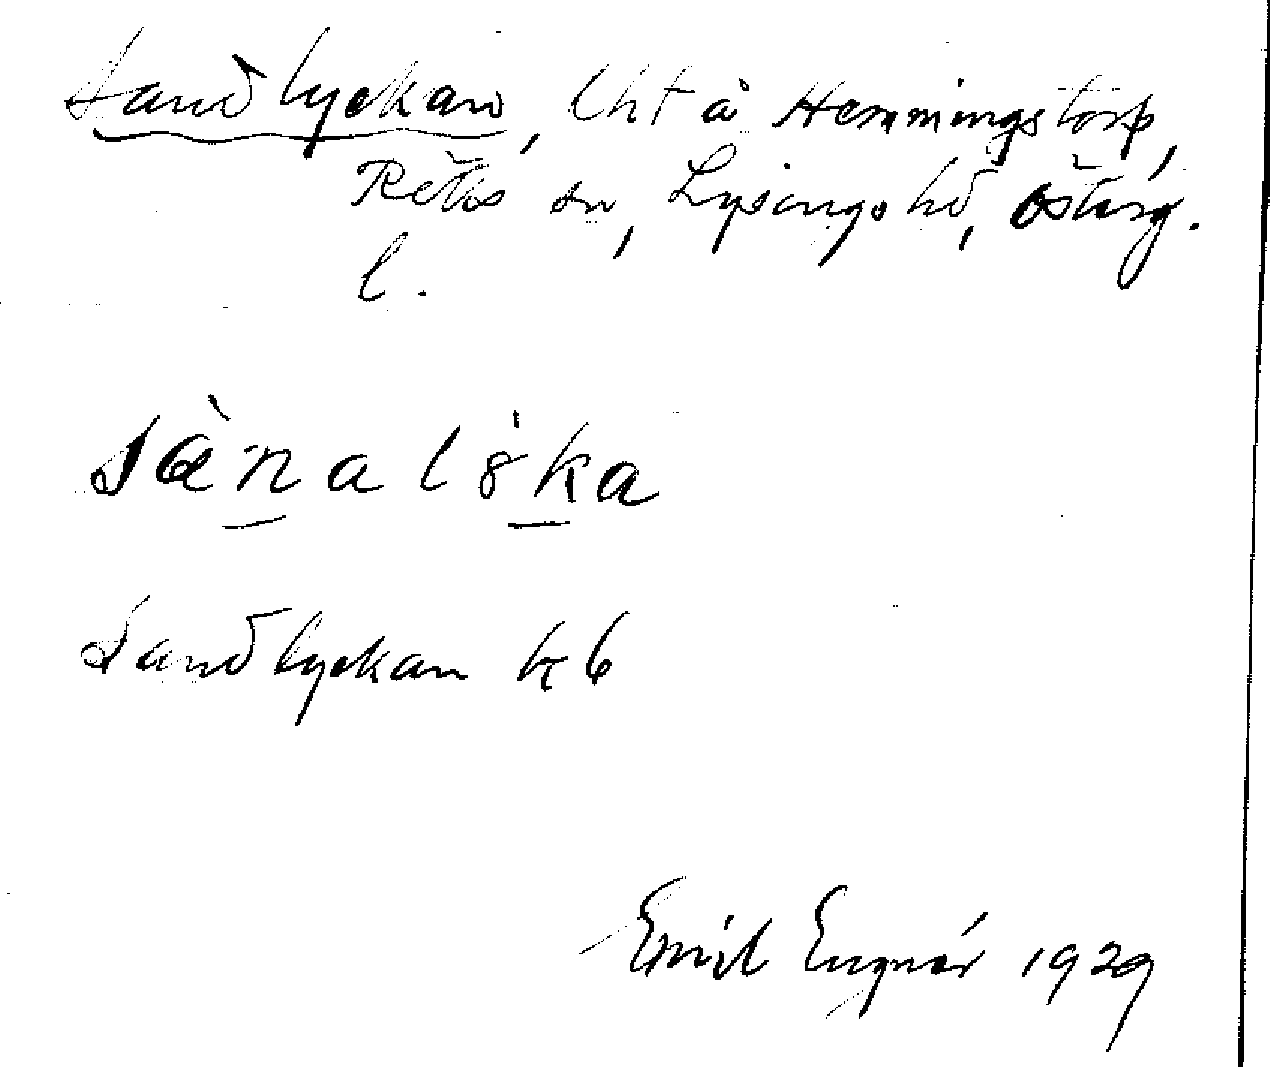 Sandlyckan, lht å Hemmingstorp,
Röks sn, Lysings hd, Österg.
l.
sànalŏ́ka
Sandlyckan k 6
Emil Engnér 1929